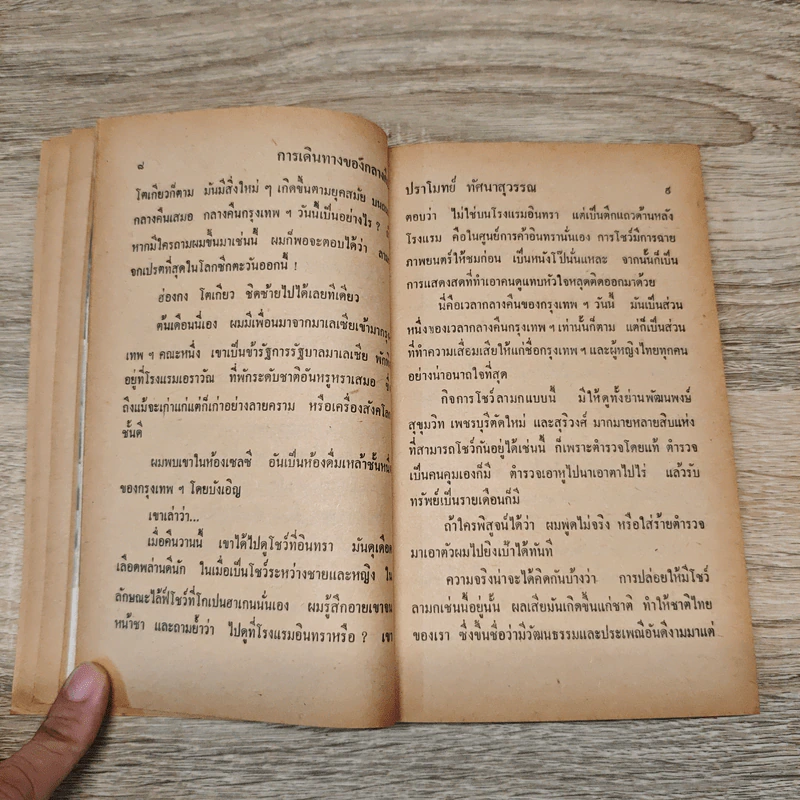 ๘ การเดินทางของกลาง
โตเกียวก็ตาม มันมีสิ่งใหม่ ๆ เกิดขึ้นตามยุคสมัย
กลางคืนเสมอ กลางคืนกรุงเทพ ฯ วันนี้เป็นอย่างไร ?
หากมีใครถามผมขึ้นมาเช่นนี้ ผมก็พอจะตอบได้ว่า
จกเปรตที่สุดในโลกซีกตะวันออกนี้ !
ฮ่องกง โตเกียว ชิดซ้ายไปได้เลยทีเดียว
ต้นเดือนนี้เอง ผมมีเพื่อนมาจากมาเลเซียเข้ามากรุง
เทพ ฯ คณะหนึ่ง เขาเป็นข้ารัฐการรัฐบาลมาเลเซีย พัก
อยู่ที่โรงแรมเอราวัณ ที่พักระดับชาติอันหรูหราเสมอ
ถึงแม้จะเก่าแก่แต่ก็เก่าอย่างลายคราม หรือเครื่องสังคโลก
ชั้นดี
ผมพบเขาในห้องเชลซี อันเป็นห้องดื่มเหล้าชั้นหนึ่ง
ของกรุงเทพ ฯ โดยบังเอิญ
เขาเล่าว่า...
เมื่อคืนวานนี้ เขาได้ไปดูโชว์ที่อินทรา มันดุเดือด
เลือดพล่านดีนัก ในเมื่อเป็นโชว์ระหว่างชายและหญิง ใน
ลักษณะไล้ฟ์โชว์ที่โกเปนฮาเกนนั่นเอง ผมรู้สึกอายเขาจน
หน้าชา และถามย้ำว่า ไปดูที่โรงแรมอินทราหรือ ? เขา
ปราโมทย์ ทัศนาสุวรรณ ๙
ตอบว่า ไม่ใช่บนโรงแรมอินทรา แต่เป็นตึกแถวด้านหลัง
โรงแรม คือในศูนย์การค้าอินทรานั่นเอง การโชว์มีการฉาย
ภาพยนตร์ให้ชมก่อน เป็นหนังโป๊นั่นแหละ จากนั้นก็เป็น
การแสดงสดที่ทำเอาคนดูแทบหัวใจหลุดติดออกมาด้วย
นี่คือเวลากลางคืนของกรุงเทพ ฯ วันนี้ มันเป็นส่วน
หนึ่งของเวลากลางคืนกรุงเทพ ฯ เท่านั้นก็ตาม แต่ก็เป็นส่วน
ที่ทำความเสื่อมเสียให้แก่ชื่อกรุงเทพ ฯ และผู้หญิงไทยทุกคน
อย่างน่าอนาถใจที่สุด
กิจการโชว์ลามกแบบนี้ มีให้ดูทั้งย่านพัฒนพงษ์
สุขุมวิท เพชรบุรีตัดใหม่ และสุริวงศ์ มากมายหลายสิบแห่ง
ที่สามารถโชว์กันอยู่ได้เช่นนี้ ก็เพราะตำรวจโดยแท้ ตำรวจ
เป็นคนคุมเองก็มี ตำรวจเอาหูไปนาเอาตาไปไร่ แล้วรับ
ทรัพย์เป็นรายเดือนก็มี
ถ้าใครพิสูจน์ได้ว่า ผมพูดไม่จริง หรือใส่ร้ายตำรวจ
มาเอาตัวผมไปยิงเป้าได้ทันที
ความจริงน่าจะได้คิดกันบ้างว่า การปล่อยให้มีโชว์
ลามกเช่นนี้อยู่นั้น ผลเสียมันเกิดขึ้นแก่ชาติ ทำให้ชาติไทย
ของเรา ซึ่งขึ้นชื่อว่ามีวัฒนธรรมและประเพณีอันดีงามมาแต่